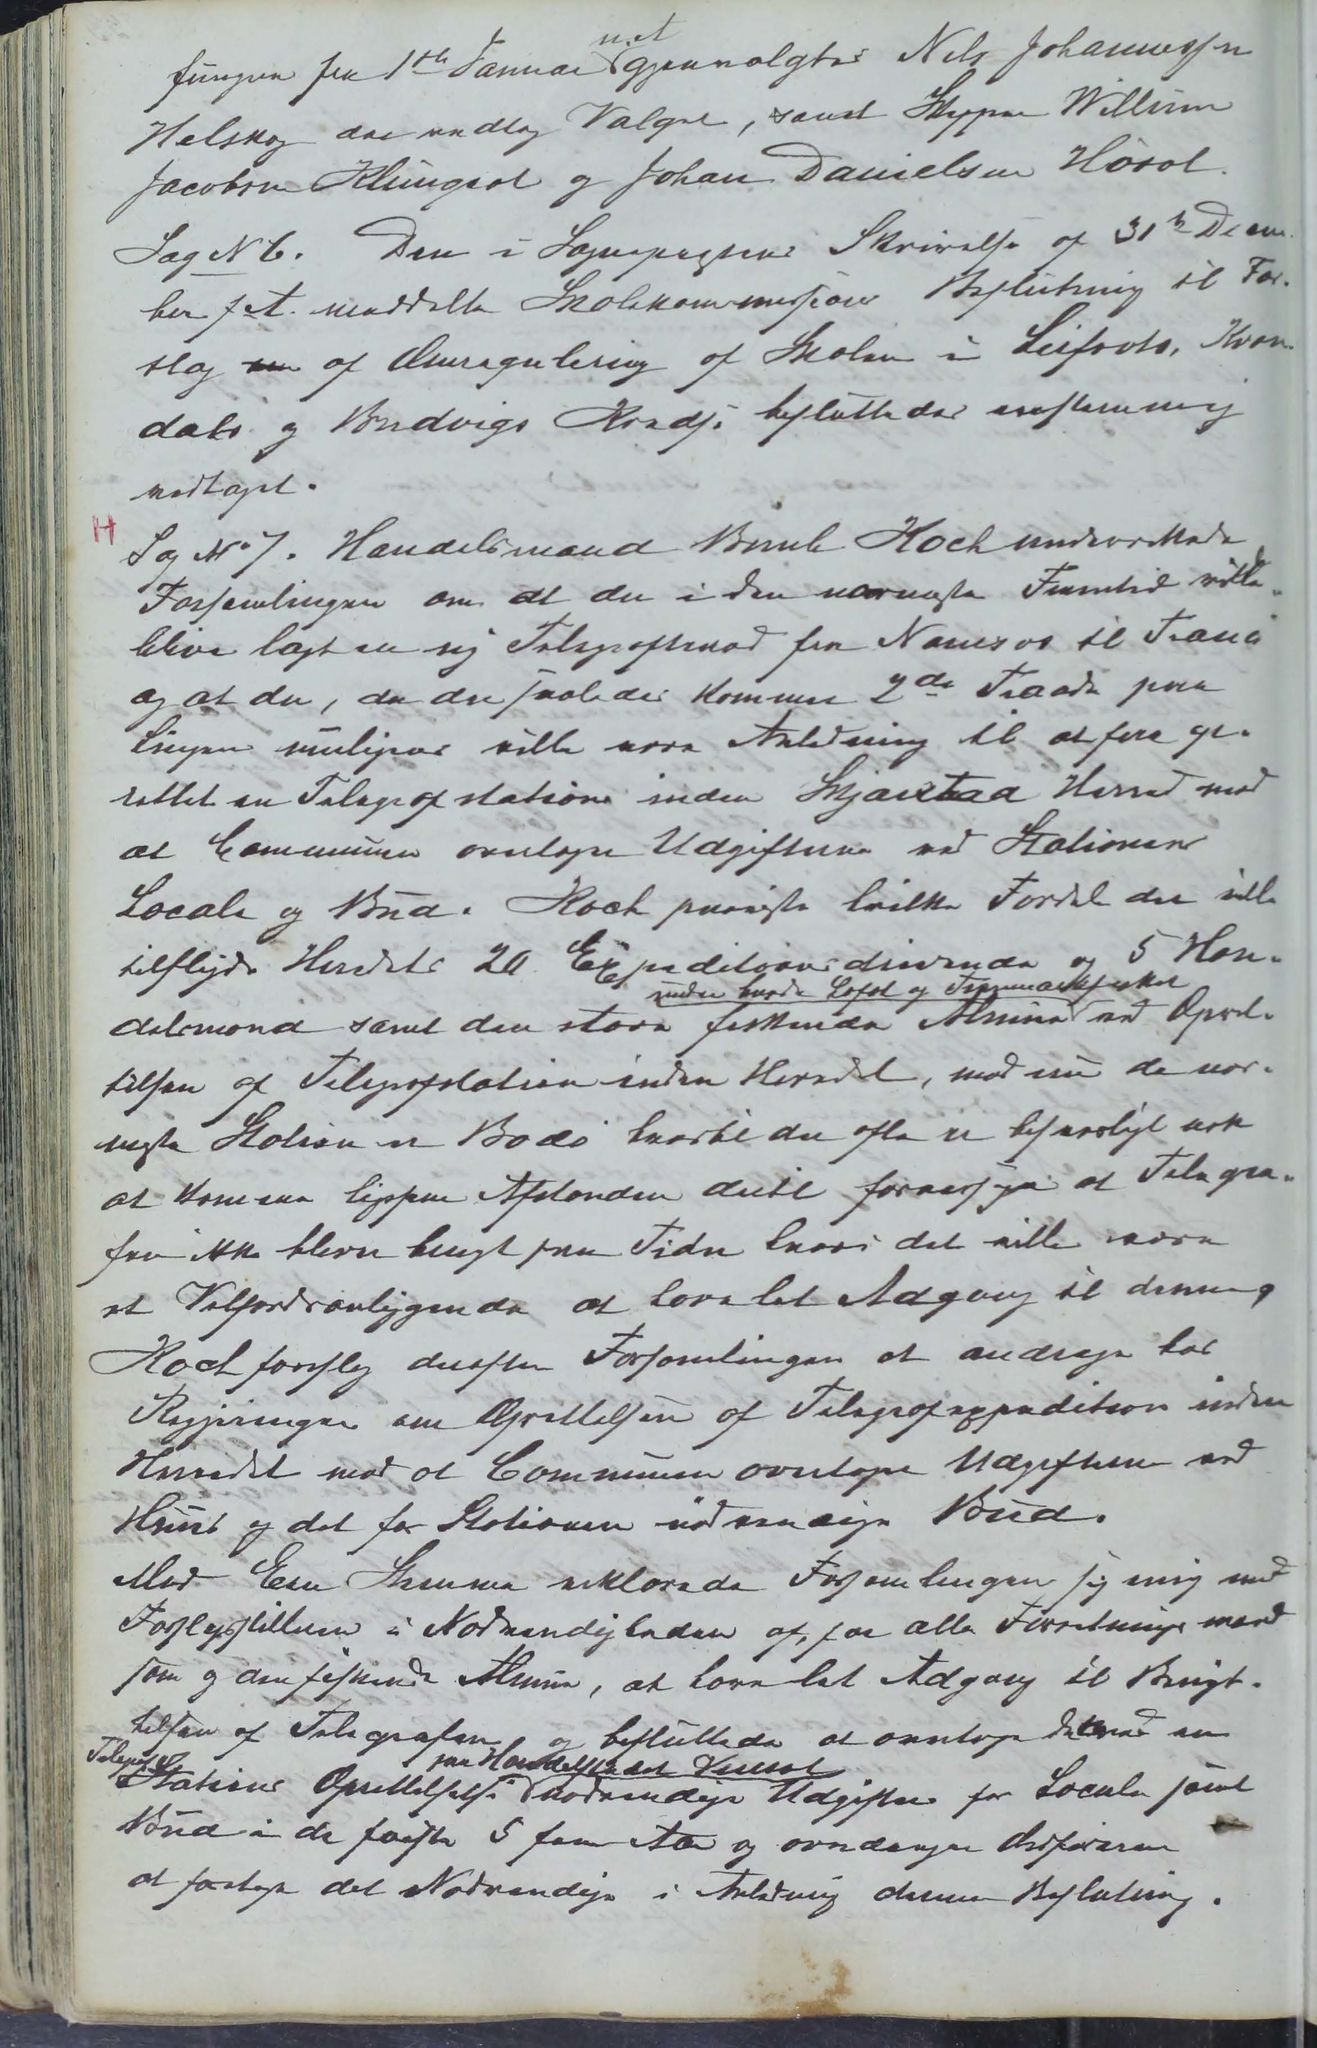 fungere fra 1ste Januar n.A. gjenvalgtes Nels Johannessen
Helskog der modtog Valget, samt Skipper Willum
Jacobsen Klungset og Johan Danielsen Hösol.
Sag N 6. Den i Sognepræstens Skrivelse af 31te Decem-
ber f.A. meddelte Skolekommissions Beslutning til For-
slag af Omregulering af Skolen i Leifsets, Kvan-
dals og Budvigs Kreds, besluttedes eenstemmig
vedtaget.
H
Sag No 7. Handelsmand Bernt Koch underrettede
Forsamlingen om at der i den nærmeste Fremtid vilde
blive lagt en ny Telegraftraad fra Namsos til Tranö
og at der, da der saaledes kommer 2de Traade paa
Linjen muligens vilde være Anledning til at faa op-
rettet en Telegrafstation inden Skjærstad Herred mod
at Communen overtager Udgifterne ved Stationens
Locale og Bud. Koch paaviste hvilken Fordel der vilde
tilflyde Herredets 20 Expeditions drivende og 5 Han-
under baade Lofot og Finmarksfisket
delsmænd samt den store fiskende Almue ved Opret-
telsen af Telegrafstation inden Herredet, mod nu de nær-
meste Station er Bodö hvortil der ofte er besværligt nok
at komme ligesom Afstanden dertil foraarsager at Telegra-
fen ikke bliver brugt paa Tider hvori det vilde være
et Velfærdsanliggende at have let Adgang til denne,
Koch foreslog derefter Forsamlingen at andrage hos
Regjeringen om Oprettelsen af Telegrafexpedition inden
Herredet mod at Communen overtager Udgifterne ved
Huus og det for Stationen nödvendige Bud.
Mod Een Stemme erklærede Forsamlingen sig enig med
Forslagsstilleren i Nödvendigheden af, for alle Forretningsmænd
som og den fiskende Almue, at have let Adgang til Benyt-
telsen af Telegrafen og besluttede at overtage de ved en
Telegraf paa Handelsstedet Venset
Stations Oprettelse nödvendige Udgifter for Locale samt
Bud i de förste 5 fem Aar og overdrager Ordföreren
at foretage det Nödvendige i Anledning denne Beslutning.